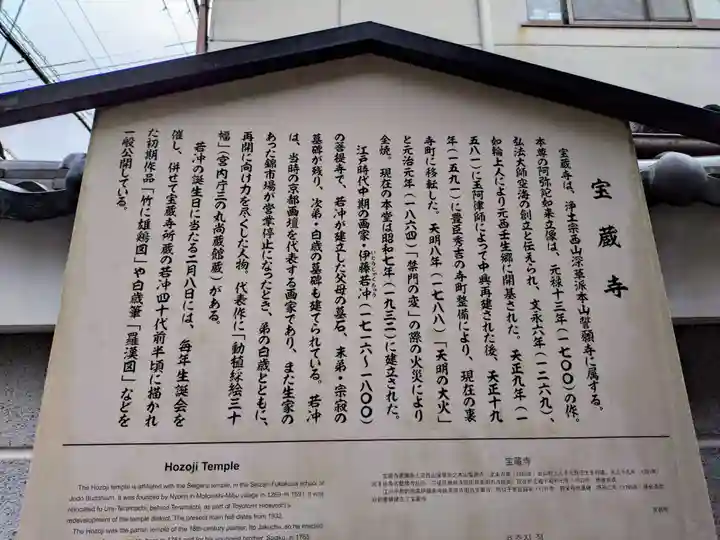 宝蔵寺
宝蔵寺は、浄土宗西山深草派本山誓願寺に属する。
本尊の阿弥陀如来立像は、元禄十三年(一七〇〇)の作。
弘法大師空海の創立と伝えられ、文永六年(一二六九)、
如輪上人により元西壬生郷に開基された。天正九年(一
五八一)に玉阿律師によって中興再建された後、天正十九
年(一五九一)に豊臣秀吉の寺町整備により、現在の裏
寺町に移転した。天明八年(一七八八)「天明の大火」
と元治元年(一八六四)「禁門の変」の際の火災により
全焼。現在の本堂は昭和七年(一九三二)に建立された。
江戸時代中期の画家・伊藤若冲(一七一六〜一八〇〇)
いとうじゃくちゅう
の菩提寺で、若冲が建立した父母の墓石、末弟・宗寂の
墓碑が残り、次弟・白歳の墓碑も建てられている。若冲
は、当時の京都画壇を代表する画家であり、また生家の
あった錦市場が営業停止になったとき、弟の白歳とともに、
再開に向け力を尽くした人物。代表作に「動植綵絵三十
幅」(宮内庁三の丸尚蔵館蔵)がある。
若冲の誕生日に当たる二月八日には、毎年生誕会を
催し、併せて宝蔵寺所蔵の若冲四十代前半頃に描かれ
た初期作品「竹に雄鶏図」や白歳筆「羅漢図」などを
一般公開している。
Hozoji Temple
The Hozoji temple is affiliated with the Seiganji temple, in the Seizan-Fukakusa school of
Jodo Buddhism. It was founded by Nyorin in Motonishi-Mibu village in 1269. In 1591, it was
relocated to Ura-Teramachi, behind Teramachi, as part of Toyotomi Hideyoshi's
redevelopment of the temple district. The present main hall dates from 1932.
The Hozoji was the parish temple of the 18th-century painter, Ito Jakuchu, so he erected
宝蔵寺